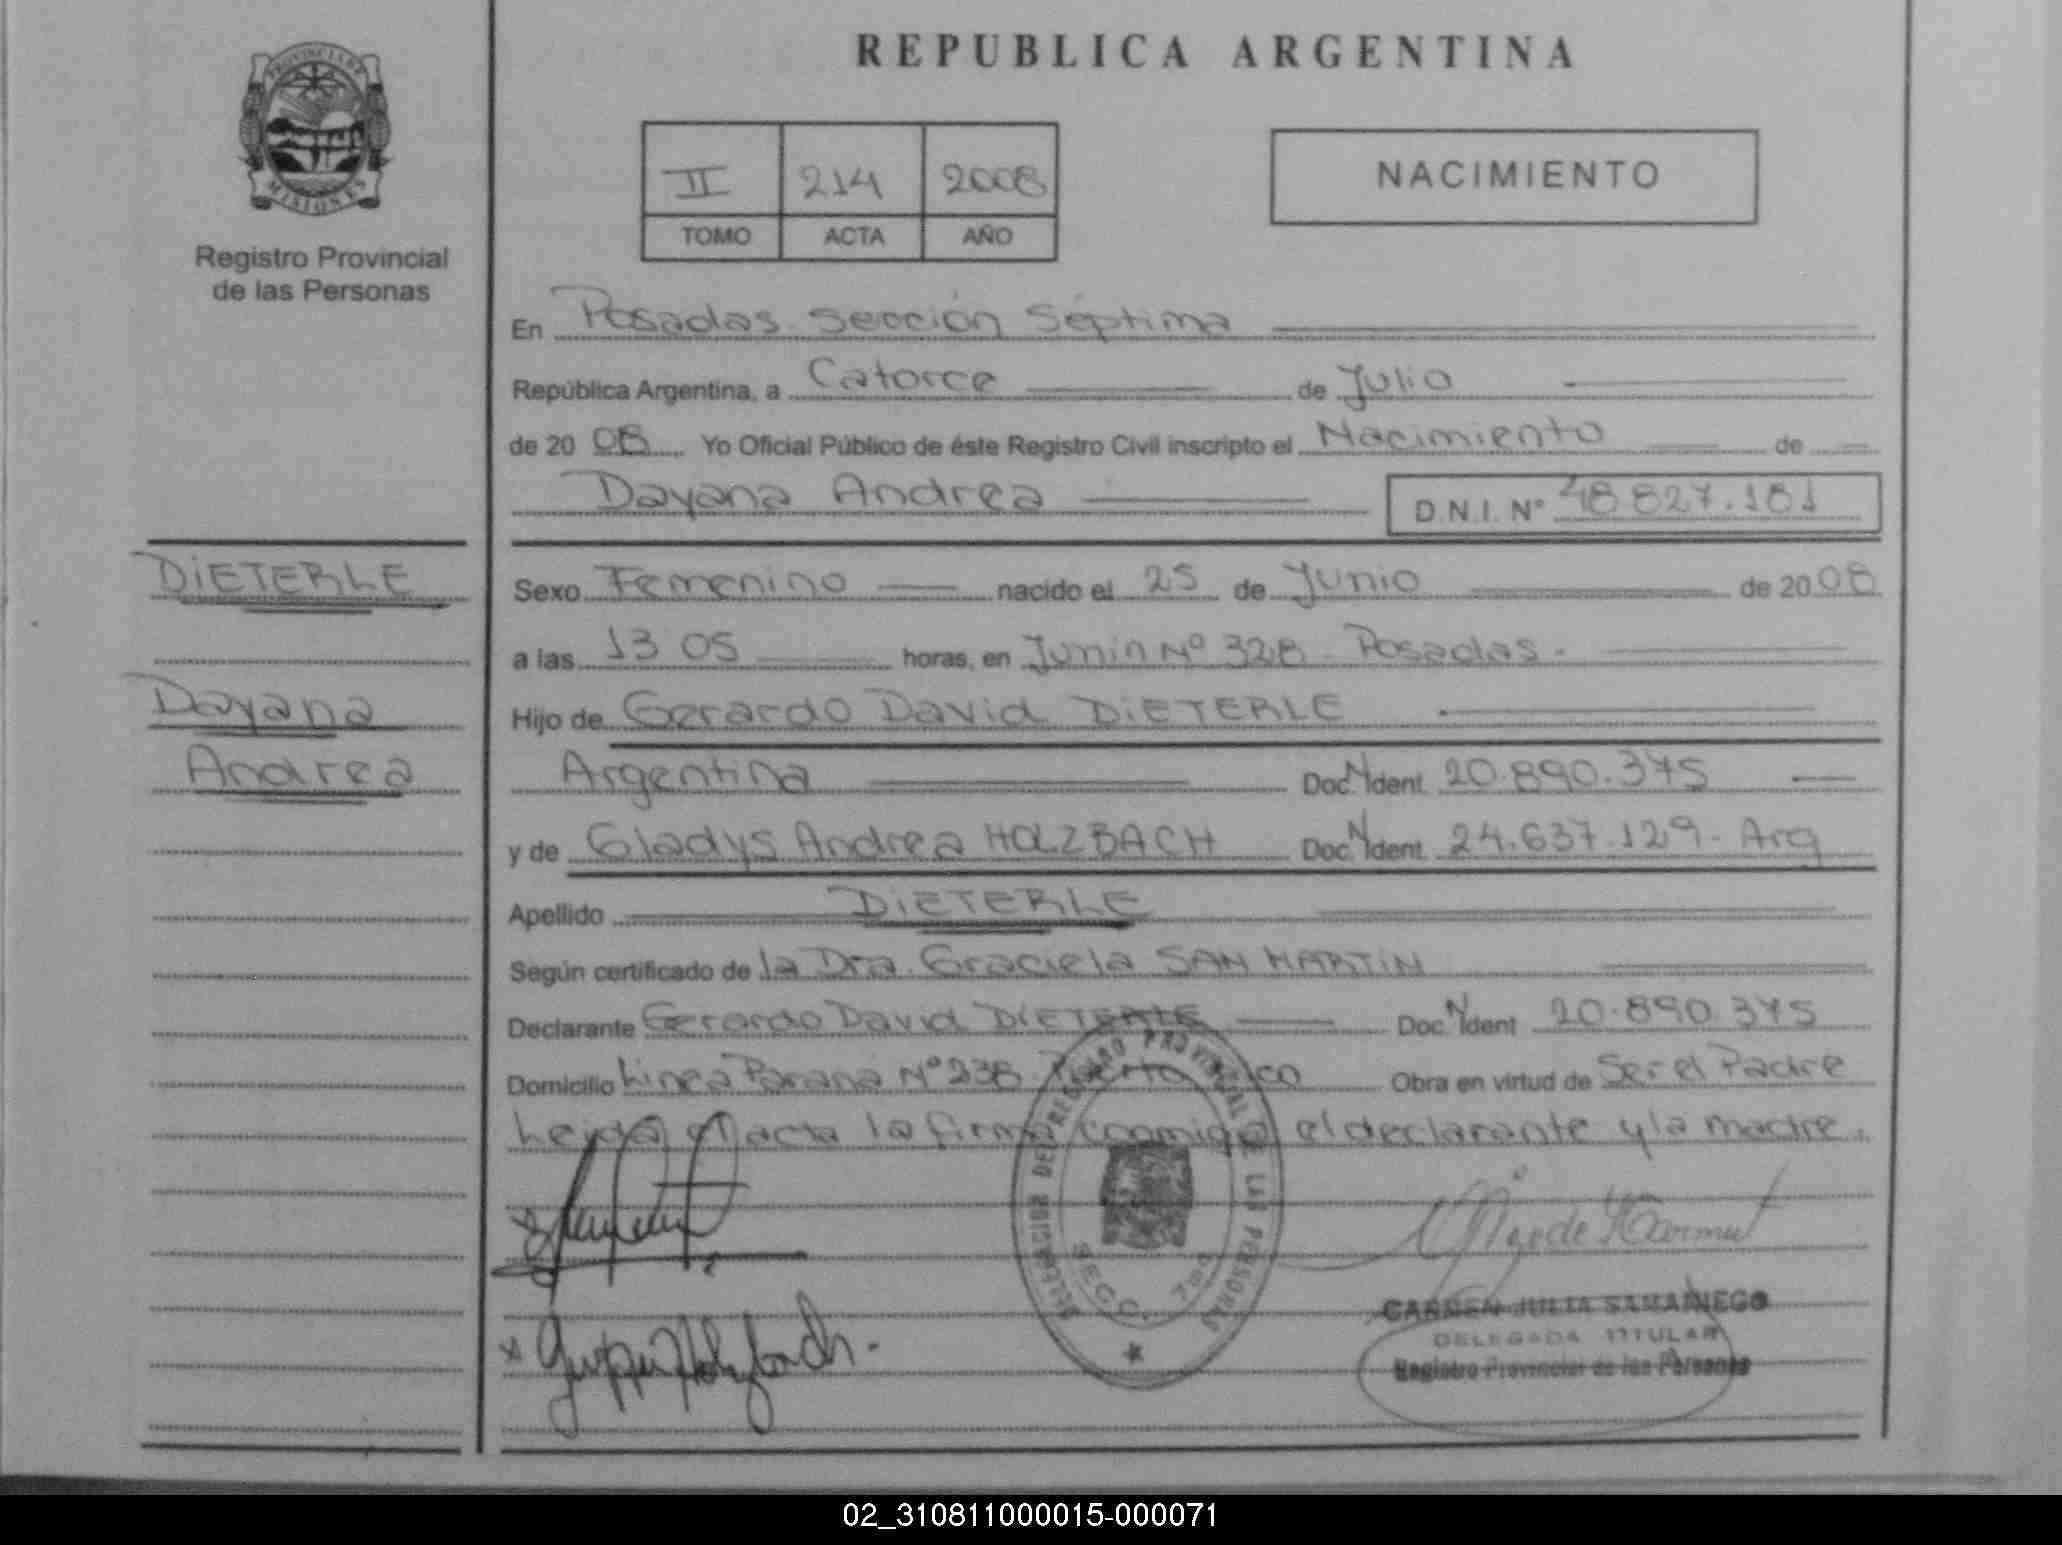 PROVINCIA DE
MISIONES
Registro Provincial
de las Personas
DIETERLE
Dayana
Andrea
REPUBLICA ARGENTINA
II 214 2008
TOMO ACTA AÑO
NACIMIENTO
En Posadas Sección Séptima
República Argentina, a Catorce de Julio
de 20 08 Yo Oficial Público de éste Registro Civil inscripto el Nacimiento de
Dayana Andrea D.N.I. Nº 48 827.181
Sexo Femenino nacido el 25 de Junio de 20 08
a las 13 05 horas, en Junin Nº 328 - Posadas -
Hijo de Gerardo David DIETERLE
Argentina Doc N Ident. 20.890.375
y de Gladys Andrea HOLZBACH Doc N Ident. 24.637.129 - Arg
Apellido DIETERLE
Según certificado de la Dra. Graciela SAN MARTIN
Declarante Gerardo David DIETERLE Doc N Ident 20.890.375
Domicilio Linea Parana Nº 238 Puerto Rico Obra en virtud de Ser el Padre
Leida el acta la firma conmigo el declarante y la madre.
DELEGACION DEL REGISTRO PROVINCIAL DE LAS PERSONAS
SECC. 7ma
CARMEN JULIA SAMANIEGO
DELEGADA TITULAR
Registro Provincial de las Personas
02_310811000015-000071